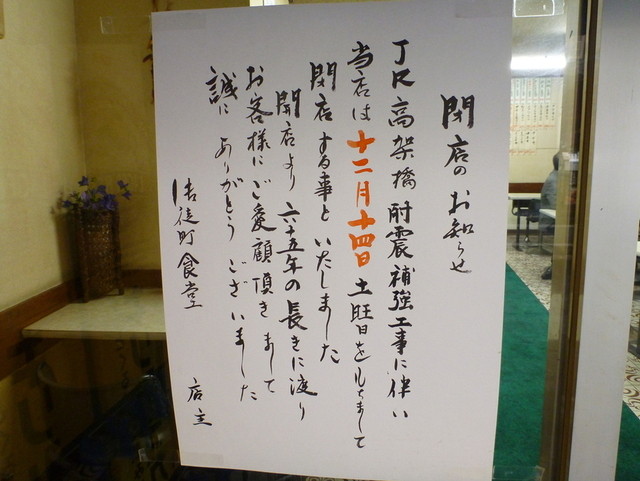 閉店のお知らせ
JR高架橋耐震補強工事に伴い
当店は十二月十四日土曜日をもちまして
閉店する事といたしました
開店より六十五年の長きに渡り
お客様にご愛顧頂きまして
誠にありがとうございました
御徒町食堂
店主